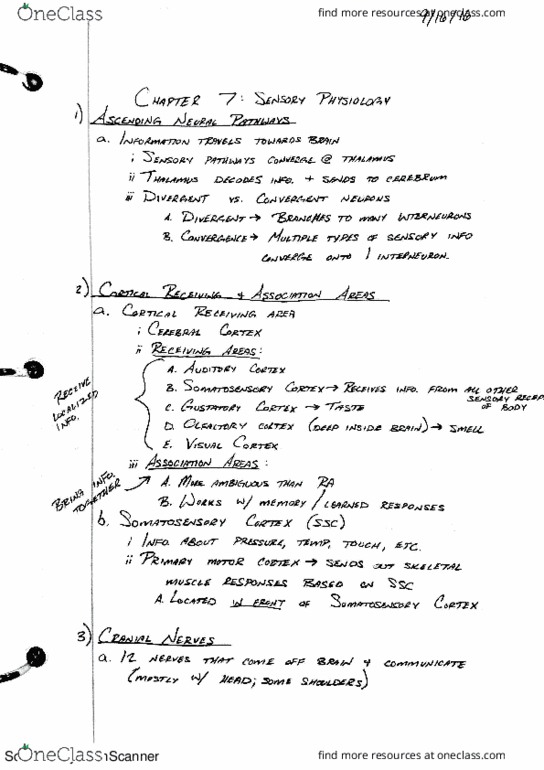 OneClass
find more resources at oneclass.com
9/16/16
CHAPTER 7: SENSORY PHYSIOLOGY
1) ASCENDING NEURAL PATHWAYS
a. INFORMATION TRAVELS TOWARDS BRAIN
i SENSORY PATHWAYS CONVERGE @ THALAMUS
ii THALAMUS DECODES INFO. + SENDS TO CEREBRUM
iii DIVERGENT VS. CONVERGENT NEURONS
A. DIVERGENT → BRANCHES TO MANY INTERNEURONS
B. CONVERGENCE → MULTIPLE TYPES OF SENSORY INFO
CONVERGE ONTO 1 INTERNEURON.
2) CORTICAL RECEIVING + ASSOCIATION AREAS
a. CORTICAL RECEIVING AREA
i CEREBRAL CORTEX
ii RECEIVING AREAS:
RECEIVE
LOCALIZED
INFO.
A. AUDITORY CORTEX
B. SOMATOSENSORY CORTEX → RECEIVES INFO. FROM ALL OTHER
SENSORY RECEP
OF BODY
C. GUSTATORY CORTEX → TASTE
D. OLFACTORY CORTEX (DEEP INSIDE BRAIN) → SMELL
E. VISUAL CORTEX
iii ASSOCIATION AREAS:
BRING INFO.
TOGETHER
A. MORE AMBIGUOUS THAN RA
B. WORKS W/ MEMORY / LEARNED RESPONSES
b. SOMATOSENSORY CORTEX (SSC)
i INFO. ABOUT PRESSURE, TEMP, TOUCH, ETC.
ii PRIMARY MOTOR CORTEX → SENDS OUT SKELETAL
MUSCLE RESPONSES BASED ON SSC
A. LOCATED IN FRONT OF SOMATOSENSORY CORTEX
3) CRANIAL NERVES
a. 12 NERVES THAT COME OFF BRAIN + COMMUNICATE
(MOSTLY W/ HEAD; SOME SHOULDERS)
OneClass
Scanner
find more resources at oneclass.com